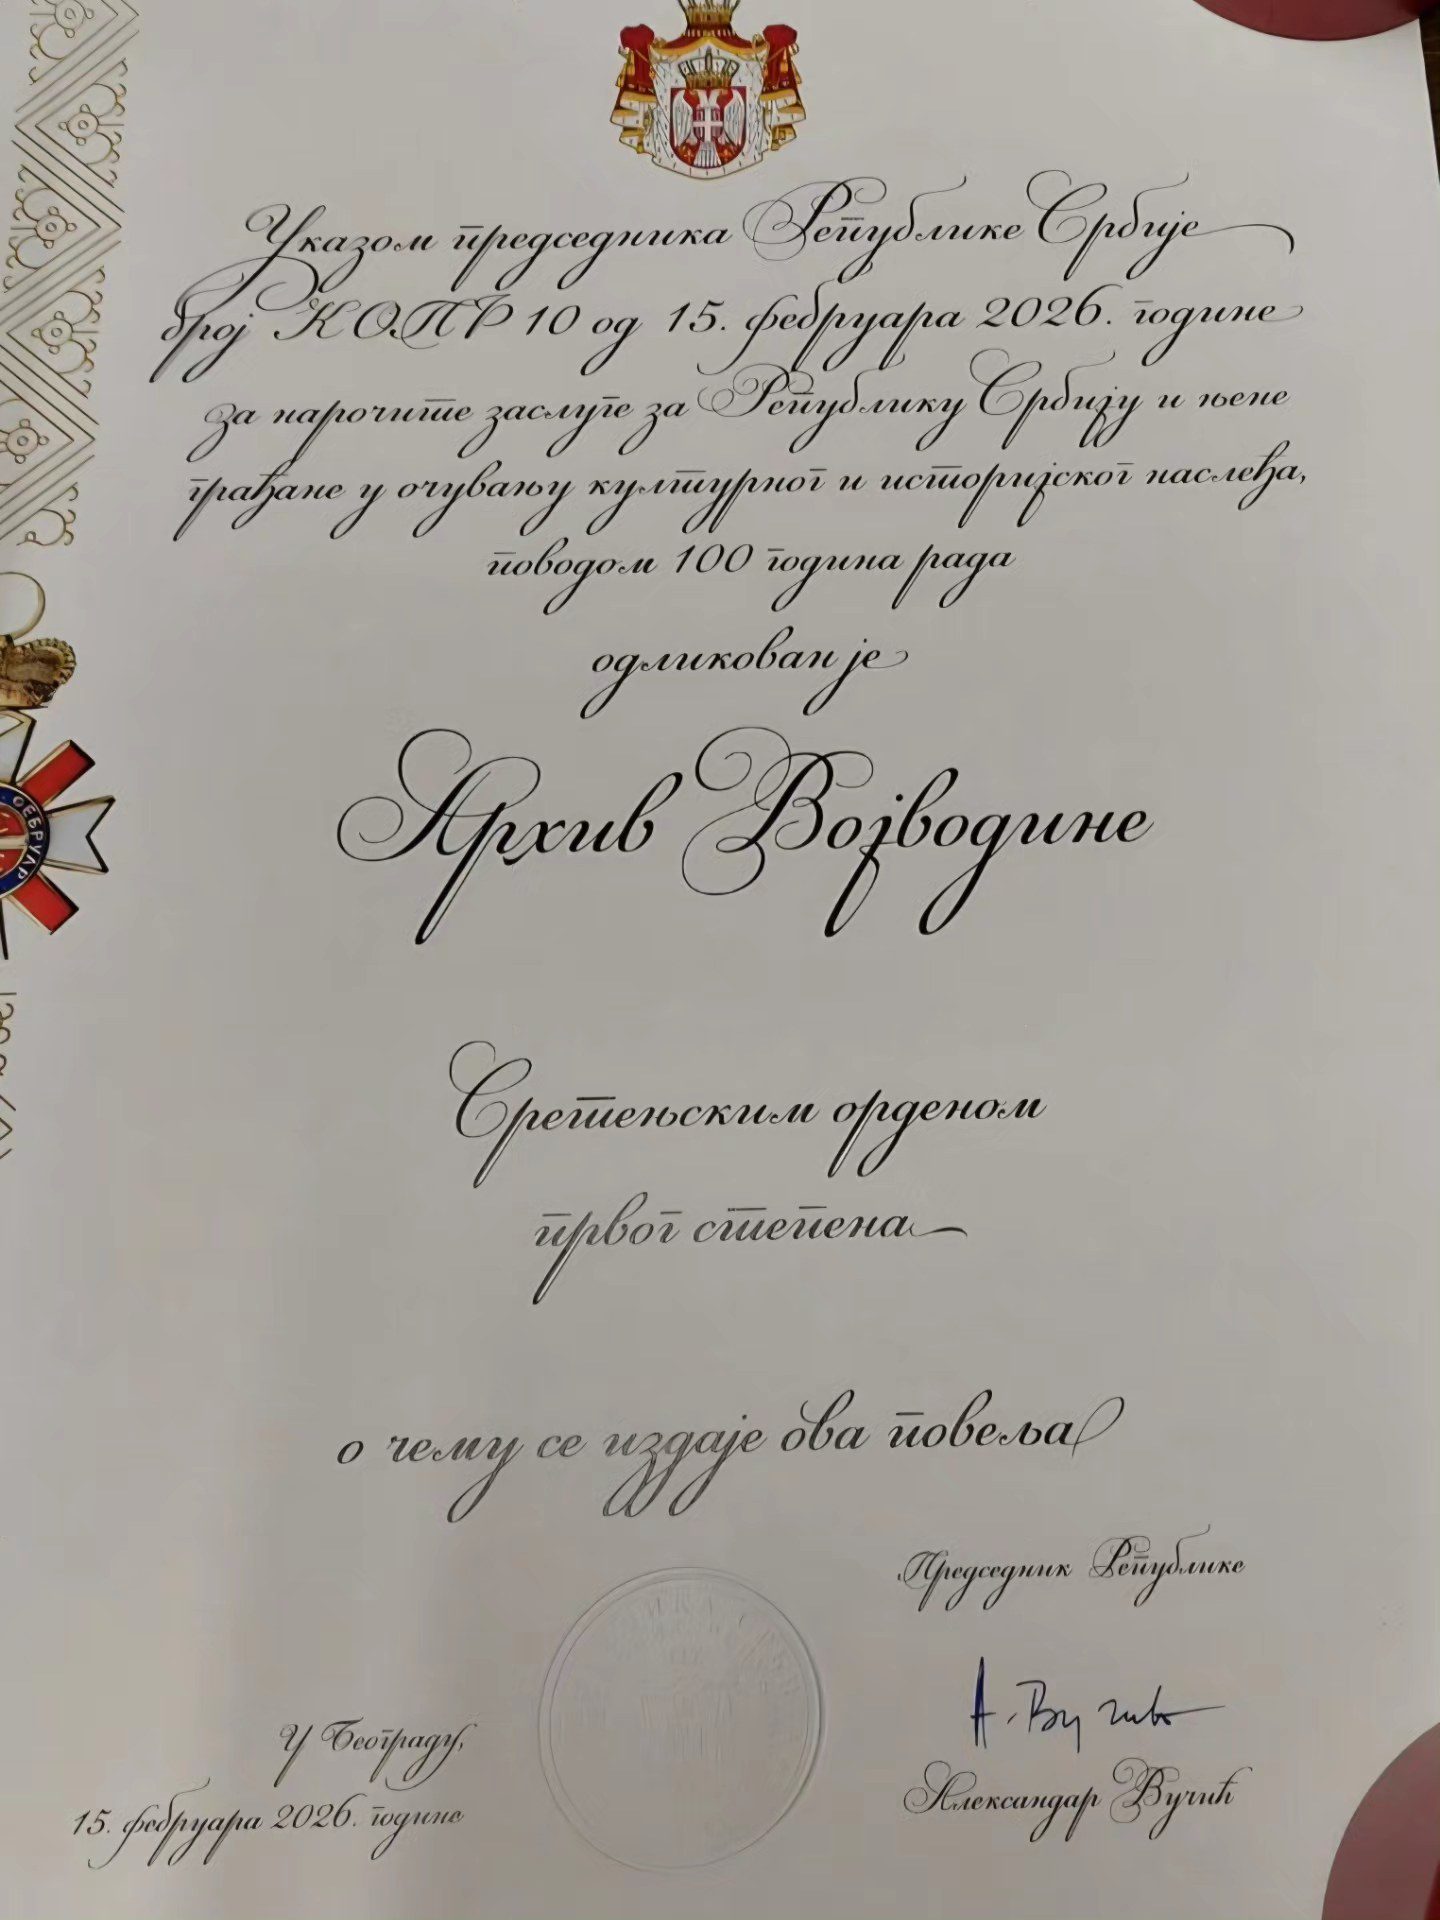 Указом председника Републике Србије
број КОПР 10 од 15. фебруара 2026. године
за нарочите заслуге за Републику Србију и њене
грађане у очувању културног и историјског наслеђа,
поводом 100 година рада
одликован је
Архив Војводине
ФЕБРУАР
Сретењским орденом
првог степена
о чему се издаје ова повеља
Председник Републике
А. Вучић
Александар Вучић
У Београду,
15. фебруара 2026. године